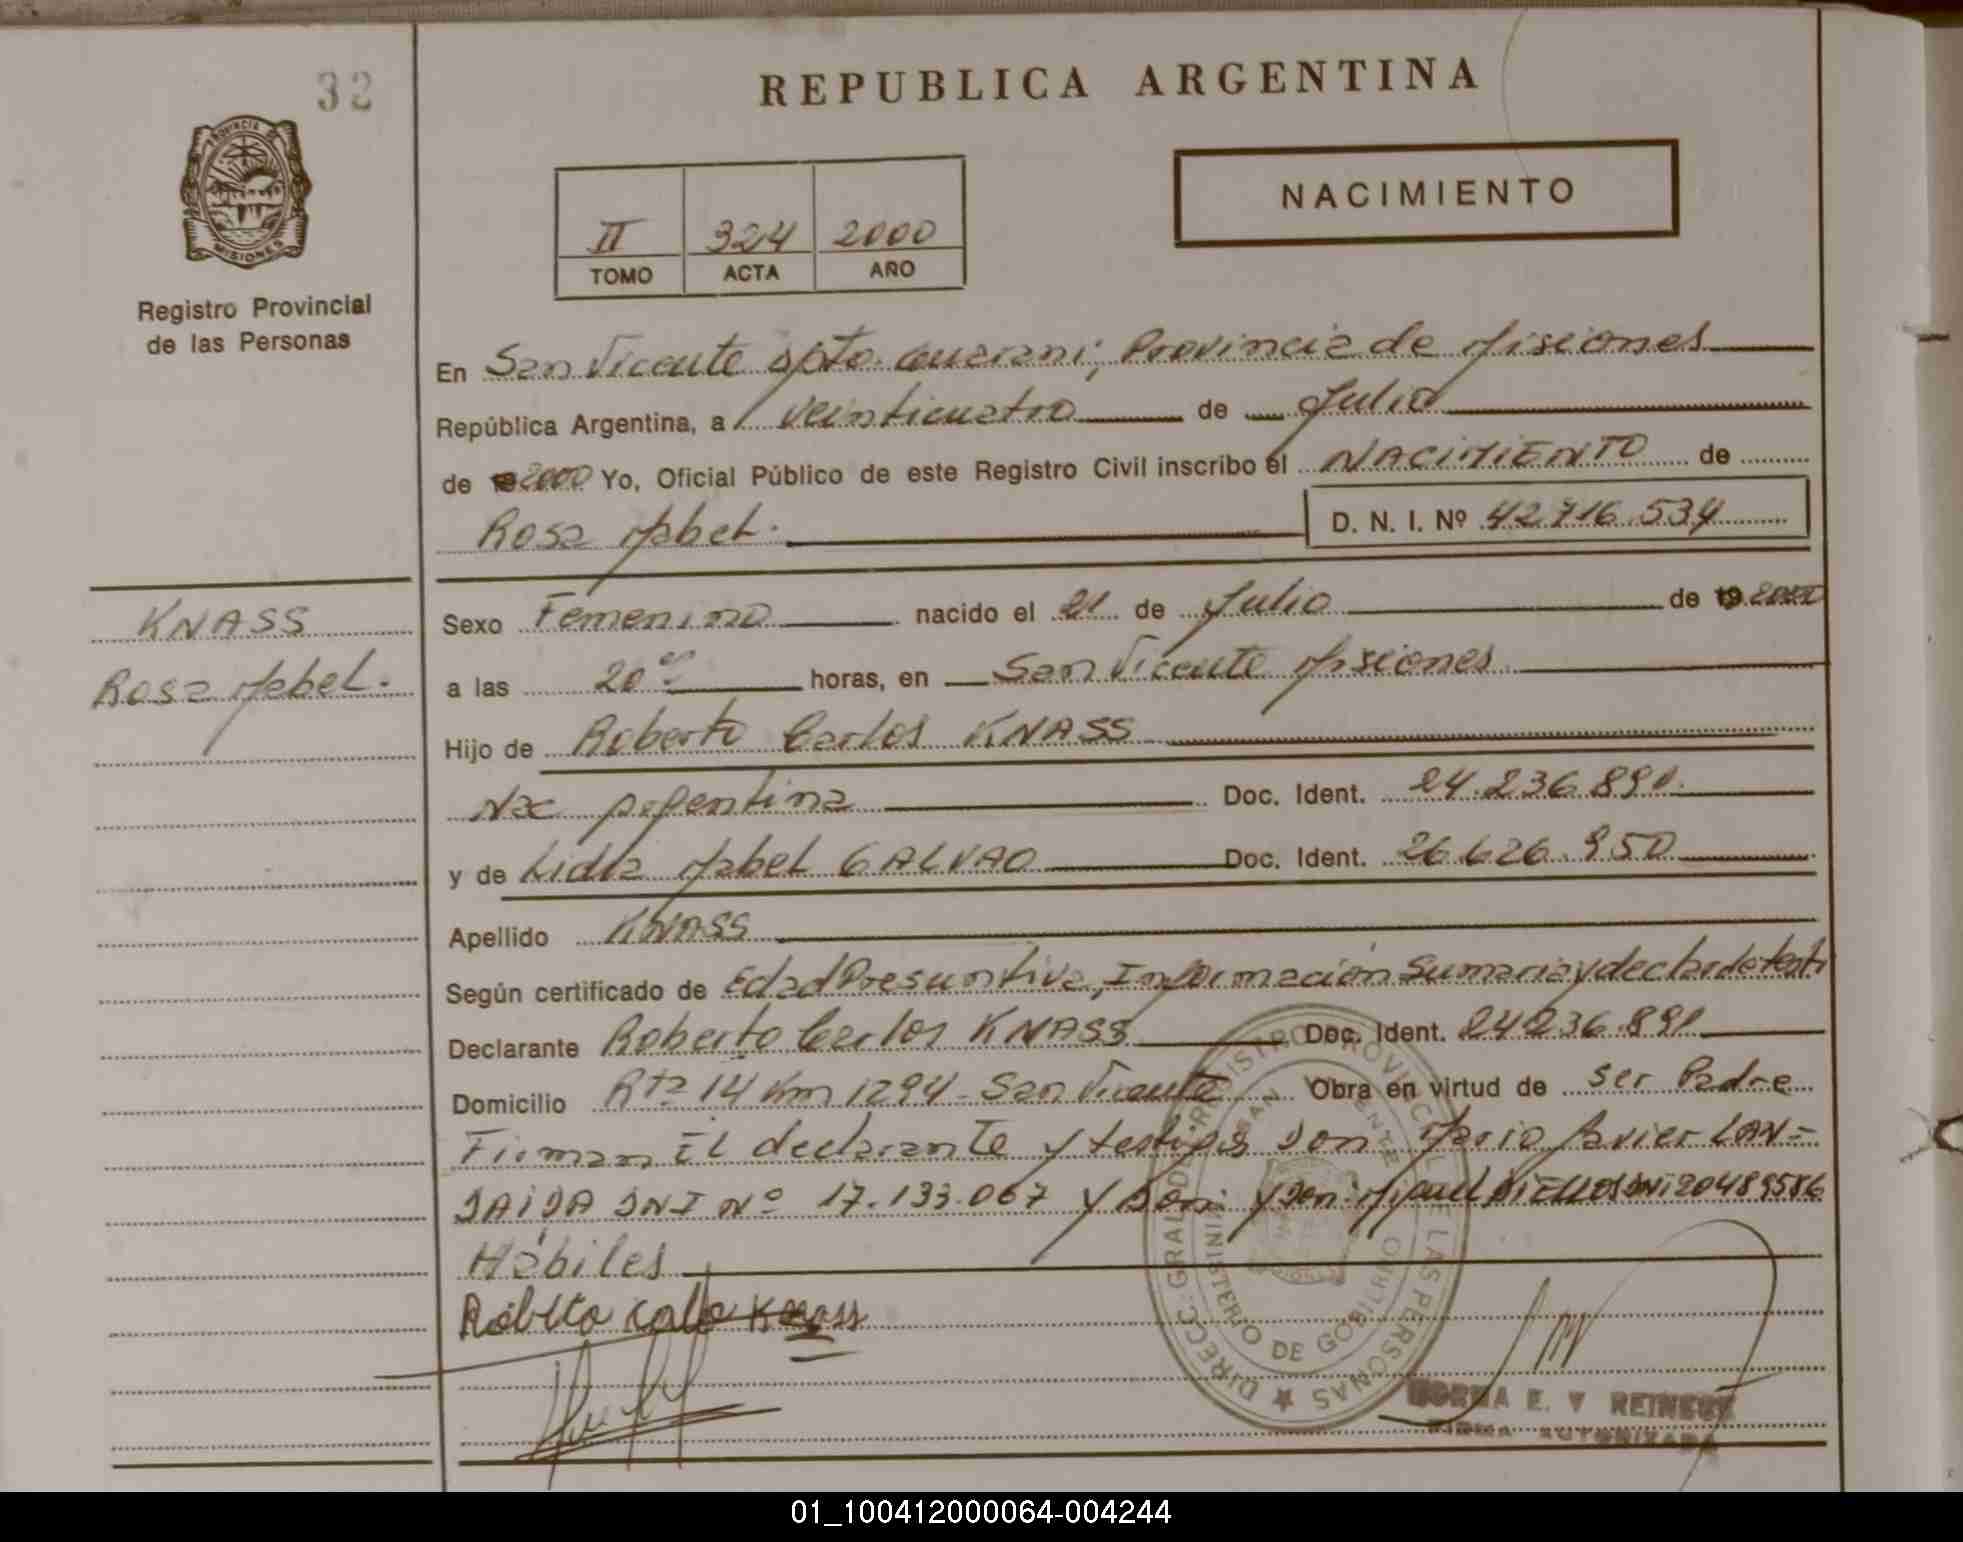 32
REPUBLICA ARGENTINA
PROVINCIA DE
MISIONES
Registro Provincial
de las Personas
II 324 2000
TOMO ACTA AÑO
NACIMIENTO
En San Vicente Dpto. Guarani, Provincia de Misiones
República Argentina, a veinticuatro de Julio
de 2000 Yo, Oficial Público de este Registro Civil inscribo el NACIMIENTO de
Rosa Mabel. D. N. I. Nº 42.716.534
KNASS
Rosa Mabel.
Sexo Femenino nacido el 21 de Julio de 19 2000
a las 20 horas, en San Vicente Misiones
Hijo de Roberto Carlos KNASS
Nac Argentina Doc. Ident. 24.236.891
y de Lidia Mabel GALVAO Doc. Ident. 26.626.950
Apellido KNASS
Según certificado de Edad Presuntiva, Información Sumaria y declar de testi
Declarante Roberto Carlos KNASS Doc. Ident. 24236.891
Domicilio Rta 14 Km 1294 - San Vicente Obra en virtud de ser Padre
Firman El declarante y testigos Don Mario Javier LAN=
DAIDA DNI Nº 17.133.067 y Don: y Don: Miguel DNI 20489586
Hábiles
Roberto Knass
DIRECC. GRAL. DEL REGISTRO PROVINCIAL DE LAS PERSONAS
SAN VICENTE
MINISTERIO DE GOBIERNO
NORMA E. V REINECK
FIRMA AUTORIZADA
01_100412000064-004244